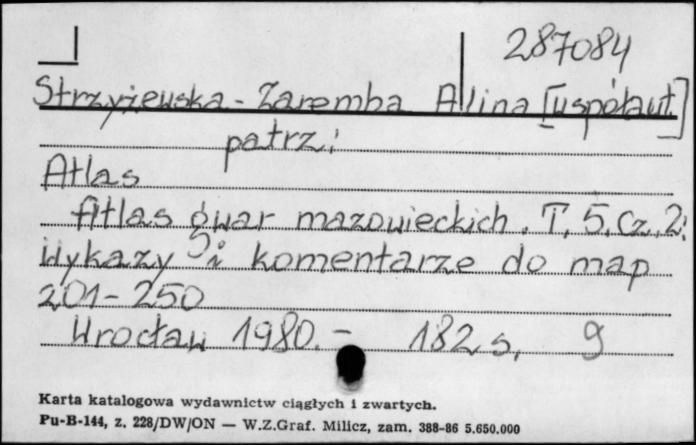 287084
Strzyżewska-Zaremba Alina [współaut.]
patrz:
Atlas
Atlas gwar mazowieckich. T. 5. Cz. 2:
Wykazy i komentarze do map
201-250
Wrocław 1980.- 182 s. 9
Karta katalogowa wydawnictw ciągłych i zwartych.
Pu-B-144, z. 228/DW/ON — W.Z.Graf. Milicz, zam. 388-86 5.650.000